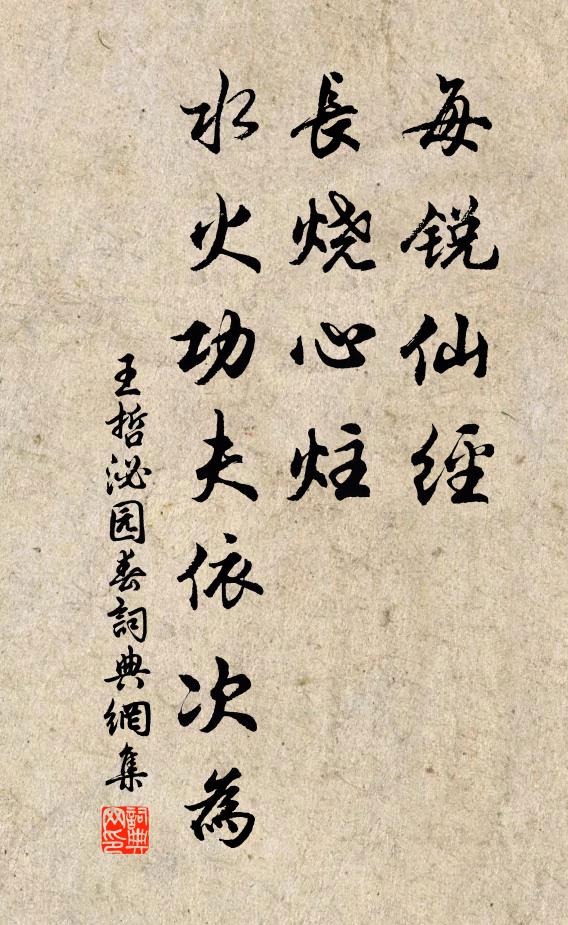 每锐仙經
長烧心炷
水火功夫依次為
王哲泌园春詞典網集
詞典
网印